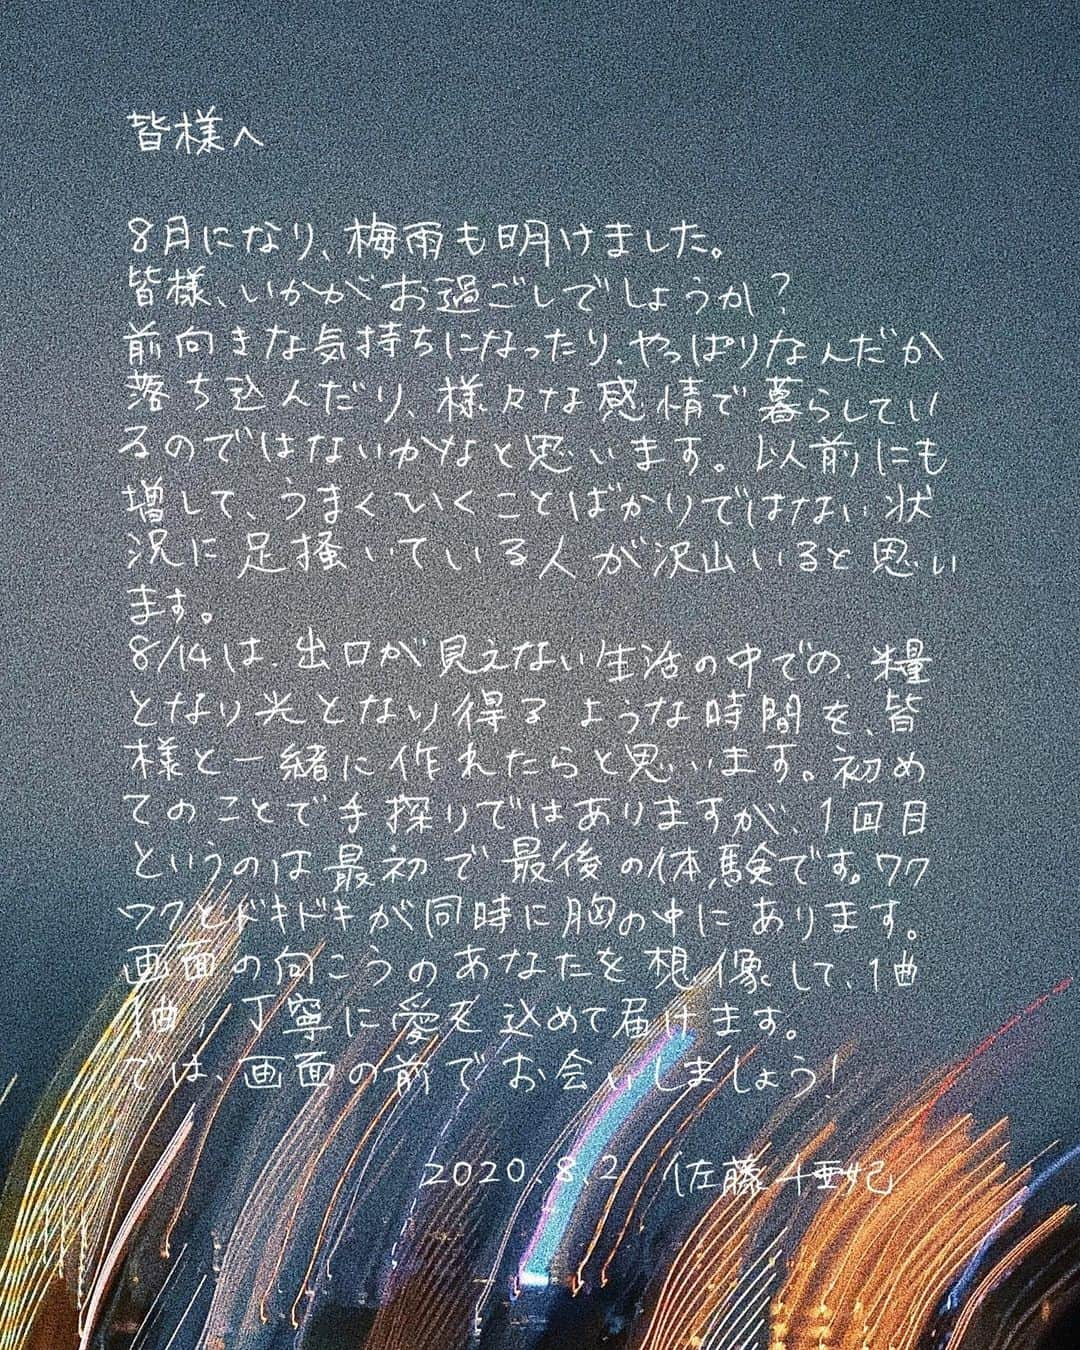 皆様へ
8月になり、梅雨も明けました。
皆様、いかがお過ごしでしょうか?
前向きな気持ちになったり、やっぱりなんだか
落ち込んだり、様々な感情で暮らしてい
るのではないかなと思います。以前にも
増して、うまくいくことばかりではない状
況に足掻いている人が沢山いると思い
ます。
8/14は、出口が見えない生活の中での、糧
となり光となり得るような時間を、皆
様と一緒に作れたらと思います。初め
てのことで手探りではありますが、1回目
というのは最初で最後の体験です。ワク
ワクとドキドキが同時に胸の中にあります。
画面の向こうのあなたを想像して、1曲
1曲、丁寧に愛を込めて届けます。
では、画面の前でお会いしましょう!
2020.8.2 佐藤千亜妃